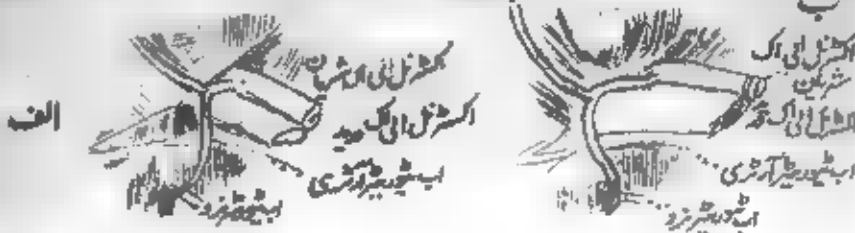 ب
الف
اکسٹرنل الی اک شریان
اکسٹرنل الی اک ورید
اب ٹیوریٹر آرٹری
اب ٹیوریٹر نرو
اکسٹرنل الی اک
شریان
اکسٹرنل الی اک
اب ٹیوریٹر آرٹری
اب ٹیوریٹر نرو